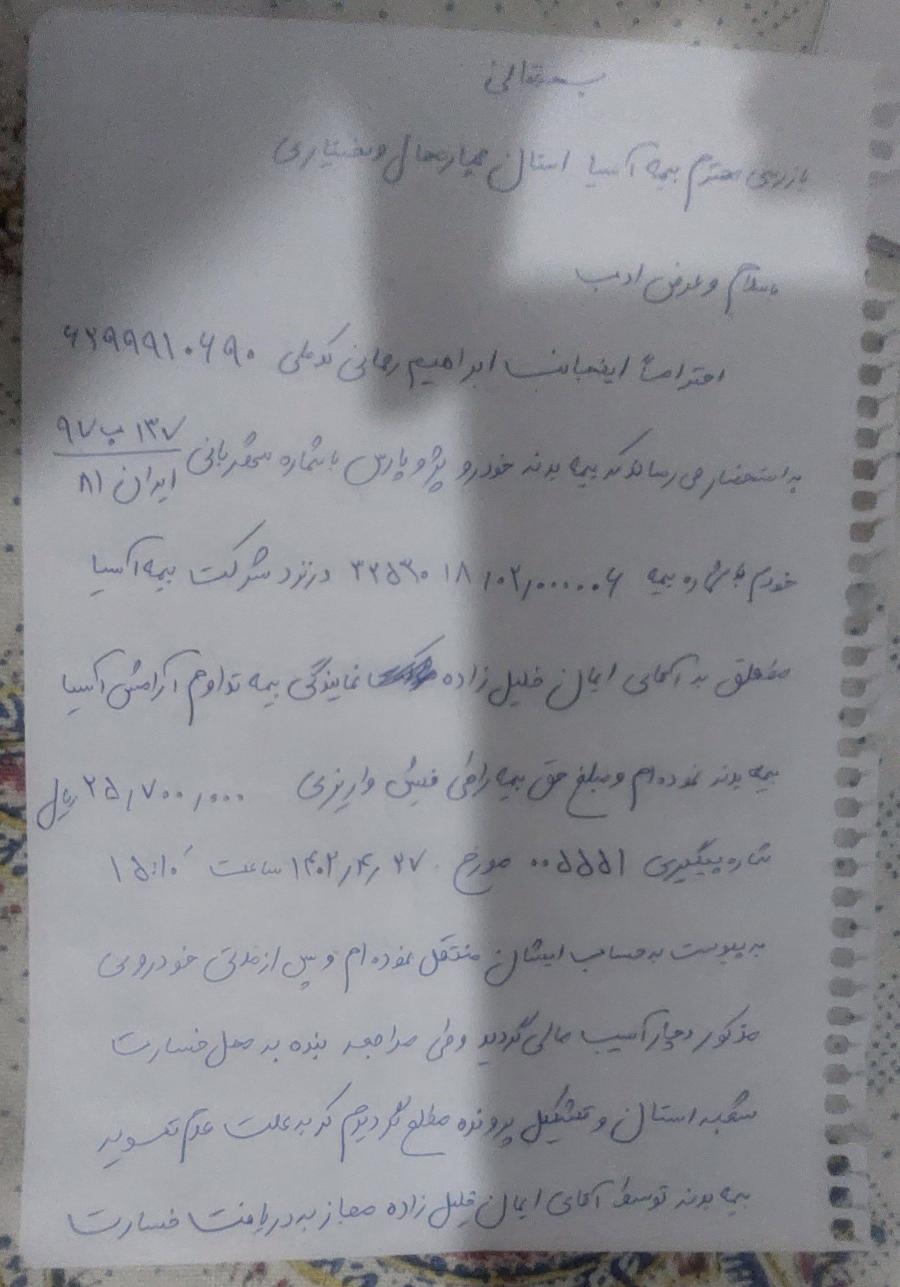 بسمه‌تعالی
بازرسی محترم بیمه آسیا استان چهارمحال و بختیاری
باسلام و عرض ادب
احتراماً اینجانب ابراهیم رحمانی کدملی ۶۲۹۹۹۱۰۶۹۰
به استحضار می رساند که بیمه بدنه خودرو پژو پارس با شماره
۱۳۷ ب ۹۷
ایران ۸۱
خودم با شماره بیمه ۳۲۵۳۰۱۸/۰۲/۰۰۰۰۰۶ در نزد شرکت بیمه آسیا
متعلق به آقای ایمان خلیل زاده نمایندگی بیمه تداوم آرامش آسیا
بیمه بدنه نموده ام و مبلغ حق بیمه را طی فیش واریزی ۲۵/۷۰۰/۰۰۰ ریال
شماره پیگیری ۰۰۵۵۵۱ مورخ ۱۴۰۲/۴/۲۷ ساعت ۱۵:۱۰
به پیوست به حساب ایشان منتقل نموده ام و پس از مدتی خودروی
مذکور دچار آسیب مالی گردید و طی مراجعه بنده به محل خسارت
شعبه استان و تشکیل پرونده مطلع گردیدم که به علت عدم تسویه
بیمه بدنه توسط آقای ایمان خلیل زاده مجاز به دریافت خسارت